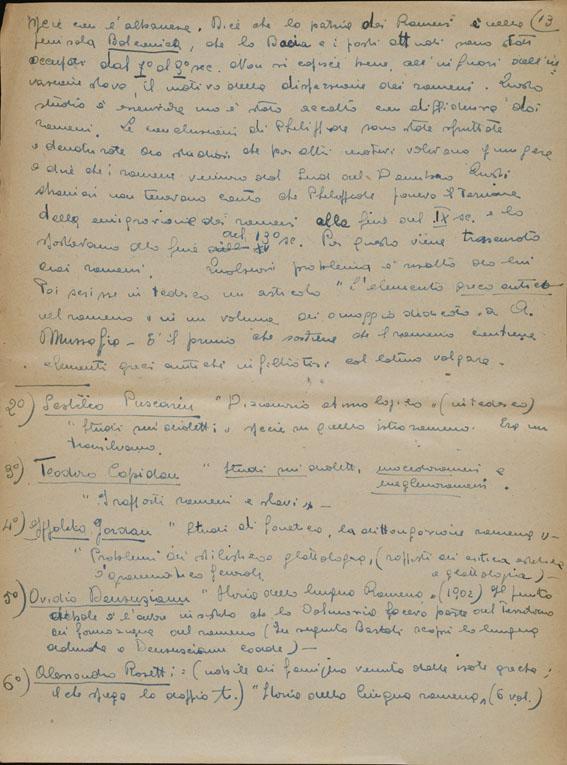 specie con l'albanese. Dice che la patria dei Rumeni è nella 13
penisola Balcanica, che la Dacia e i posti attuali sono stati
occupati dal 7º al 9º sec. Non si capisce bene, all'infuori dell'in
vasione slava, il motivo della dispersione dei rumeni. Questo
studio è stato accolto con diffidenza dai
rumeni. Le conclusioni di Philippide sono state sfruttate
e da studiosi che per altri motivi volevano giungere
a dire che i rumeni vennero dal Sud del Danubio. Questi
stranieri non tenevano conto che Philippide poneva il termine
della emigrazione dei rumeni alla fine del IX sc. e la
spostavano alla fine del 13º sc. Per questo viene trascurato
dai rumeni. problema è risolto da lui
Poi scrisse in tedesco un articolo "L'elemento greco antico
nel rumeno" in un volume di omaggio dedicato a A.
Mussafia - È il primo che sostiene che il rumeno contiene
elementi greci antichi infiltratisi col latino volgare.
2º) Sestilio Puscariu "Dizionario etimologico" (in tedesco)
"Studi sui dialetti" specie su quello istrorumeno. Era un
transilvano.
3º) Teodoro Capidan "Studi sui dialetti macedorumeni e
meglenorumeni.
"Rapporti rumeni e slavi" -
4º) Jordan "Studi di fonetica, la dittongazione rumena" -
"Problemi di stilistica glottologica, (rapporti di critica estetica
e glottologia) -
grammatica generale
5º) Ovidio Densuzianu "Storia della lingua Rumena" (1902) Il punto
debole è l'aver insistito che la Dalmazia faceva parte del territorio
di formazione del rumeno (In seguito Bartoli scoprì la lingua
dalmata e Densuzianu cadde) -
6º) Alessandro Rosetti: (nobile di famiglia venuta dalle isole greche;
il che spiega la doppia t.) "Storia della lingua rumena" (6 vol.)